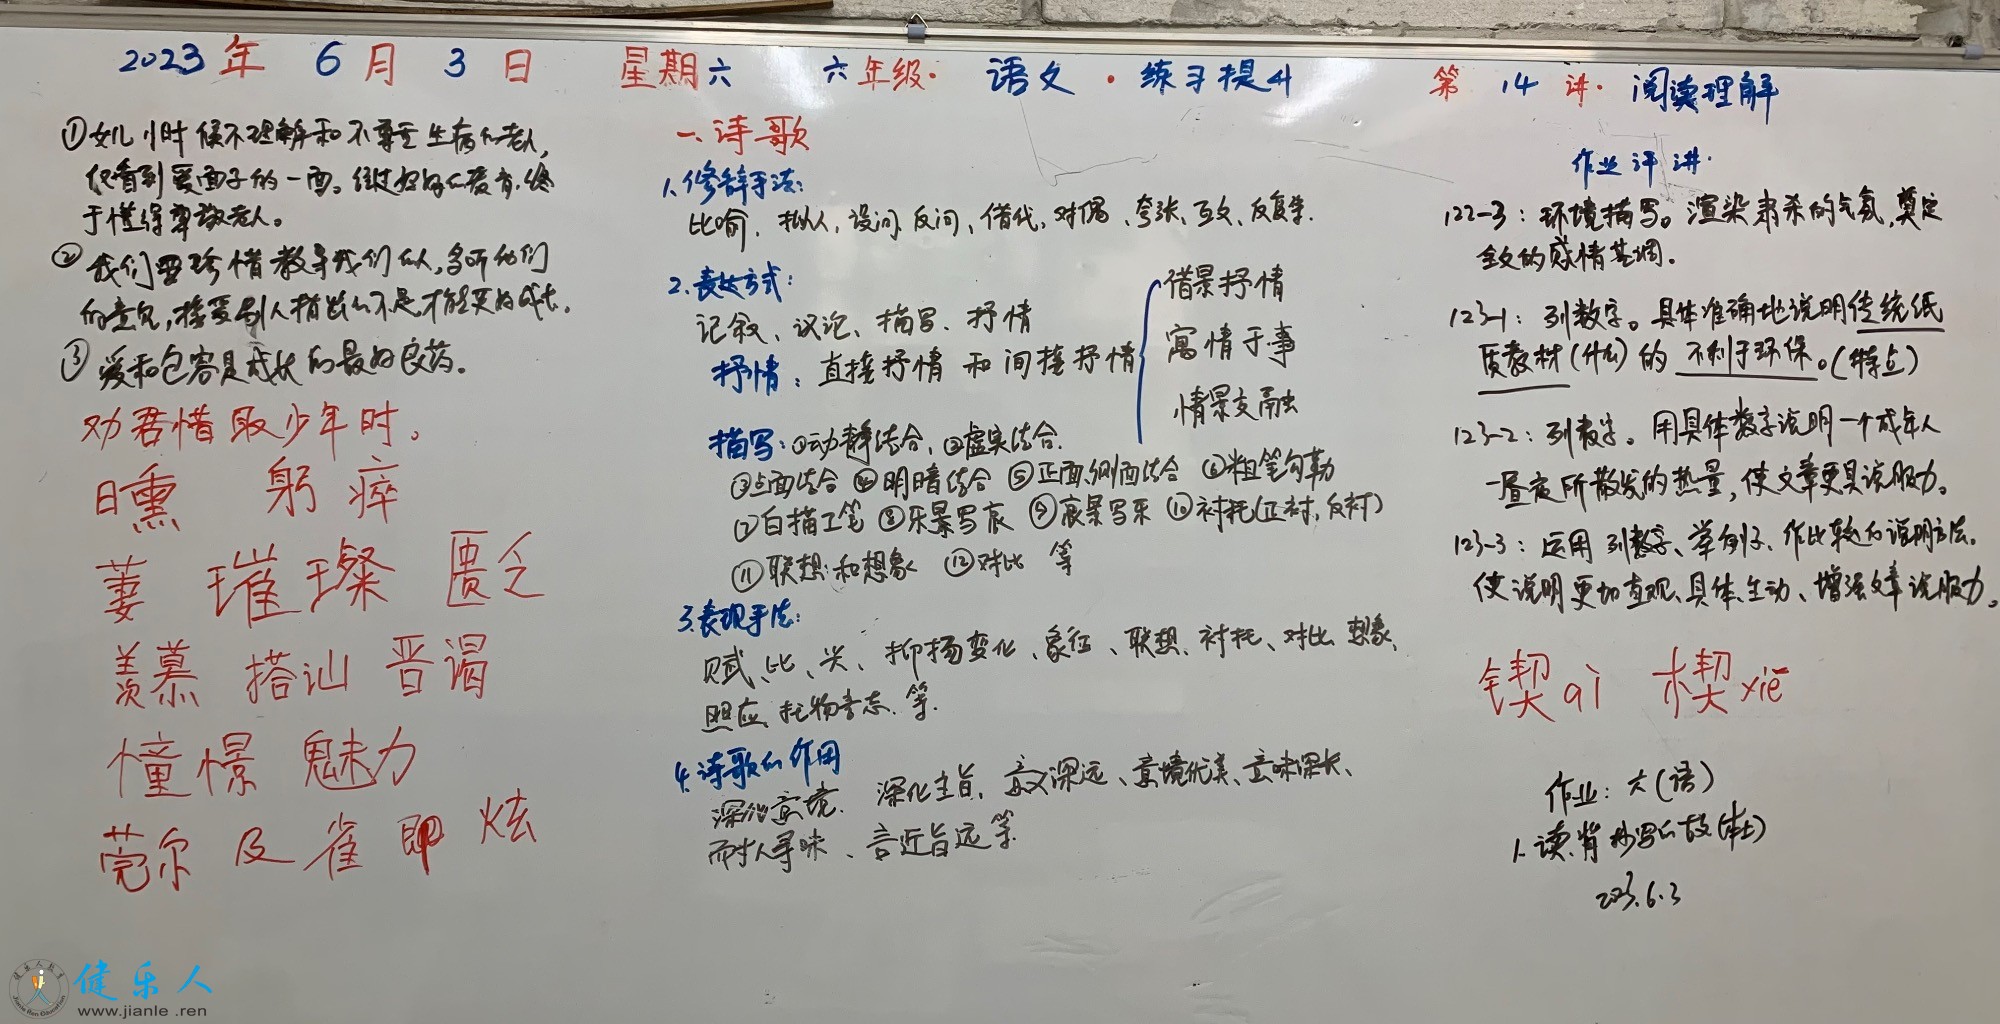 2023年 6月 3日 星期六 六年级·语文·练习提升 第14讲·阅读理解
①女儿小时候不理解和不尊重生病的老人,
仅看到爱面子的一面。经过妈妈的教育,终
于懂得尊敬老人。
②我们要珍惜教导我们的人,多听他们
的意见,接受别人指出的不足才能更好成长。
③爱和包容是成长的最好良药。
劝君惜取少年时。
曛 躬 瘁
萋 璀璨 匮乏
羡慕 搭讪 晋谒
憧憬 魅力
莞尔 及 雀 即 炫
一、诗歌
1、修辞手法:
比喻、拟人、设问、反问、借代、对偶、夸张、互文、反复等.
2、表达方式:
记叙、议论、描写、抒情
抒情:直接抒情 和 间接抒情
借景抒情
寓情于事
情景交融
描写:①动静结合,②虚实结合.
③点面结合 ④明暗结合 ⑤正面、侧面结合 ⑥粗笔勾勒
⑦白描工笔 ⑧乐景写哀 ⑨哀景写乐 ⑩衬托(正衬,反衬)
⑪联想和想象 ⑫对比 等
3、表现手法:
赋、比、兴、抑扬变化、象征、联想、衬托、对比、想象、
照应、托物言志、等.
4、诗歌的作用
深化意境. 深化主旨、意义深远、意境优美、意味深长、
耐人寻味、言近旨远 等.
作业评讲·
122-3:环境描写。渲染肃杀的气氛,奠定
全文的感情基调.
123-1:列数字。具体准确地说明传统纸
质教材(什么)的 不利于环保。(特点)
123-2:列数字。用具体数字说明一个成年人
一昼夜所散发的热量,使文章更具说服力。
123-3:运用列数字、举例子、作比较的说明方法.
使说明更加直观、具体、生动、增强文章说服力。
锲 ai 楔 xiē
作业:六(语)
1、读、背抄写的技(本)
2023.6.3
健乐人
www.jianle .ren